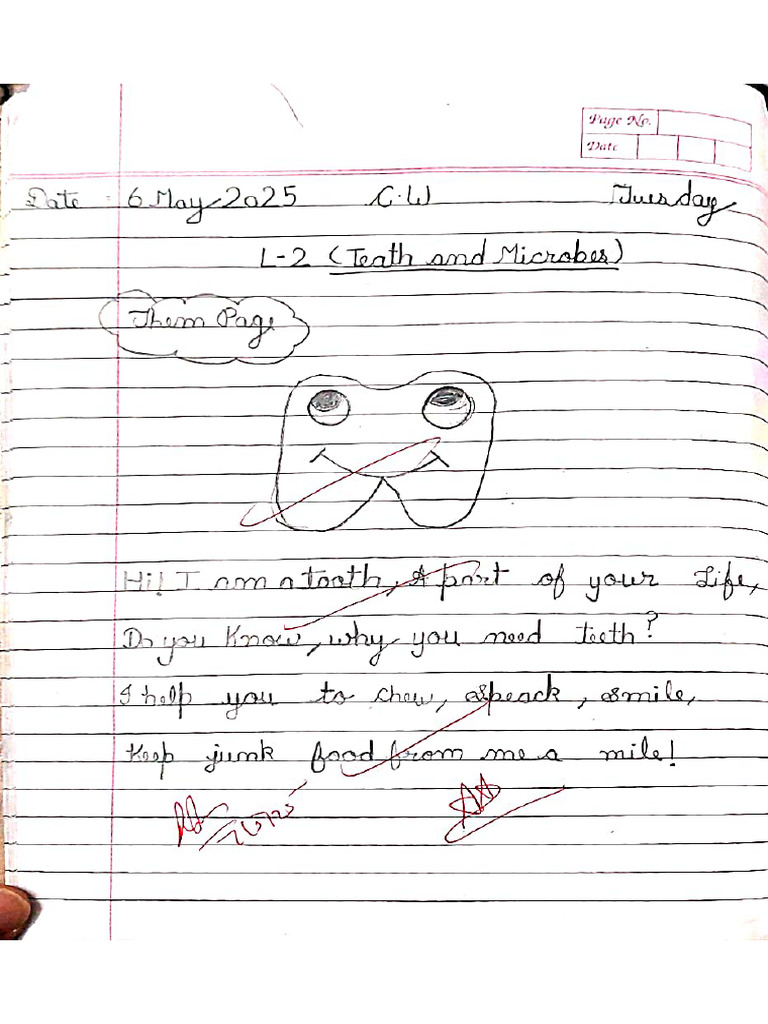 Page No.
Date
Date : 6 May 2025 C.W Tuesday
L-2 (Teath and Microbes)
Them Page
Hi! I am a tooth, A part of your Life,
Do you Know, why you need teeth?
I help you to chew, speack, smile,
Keep junk food from me a mile!